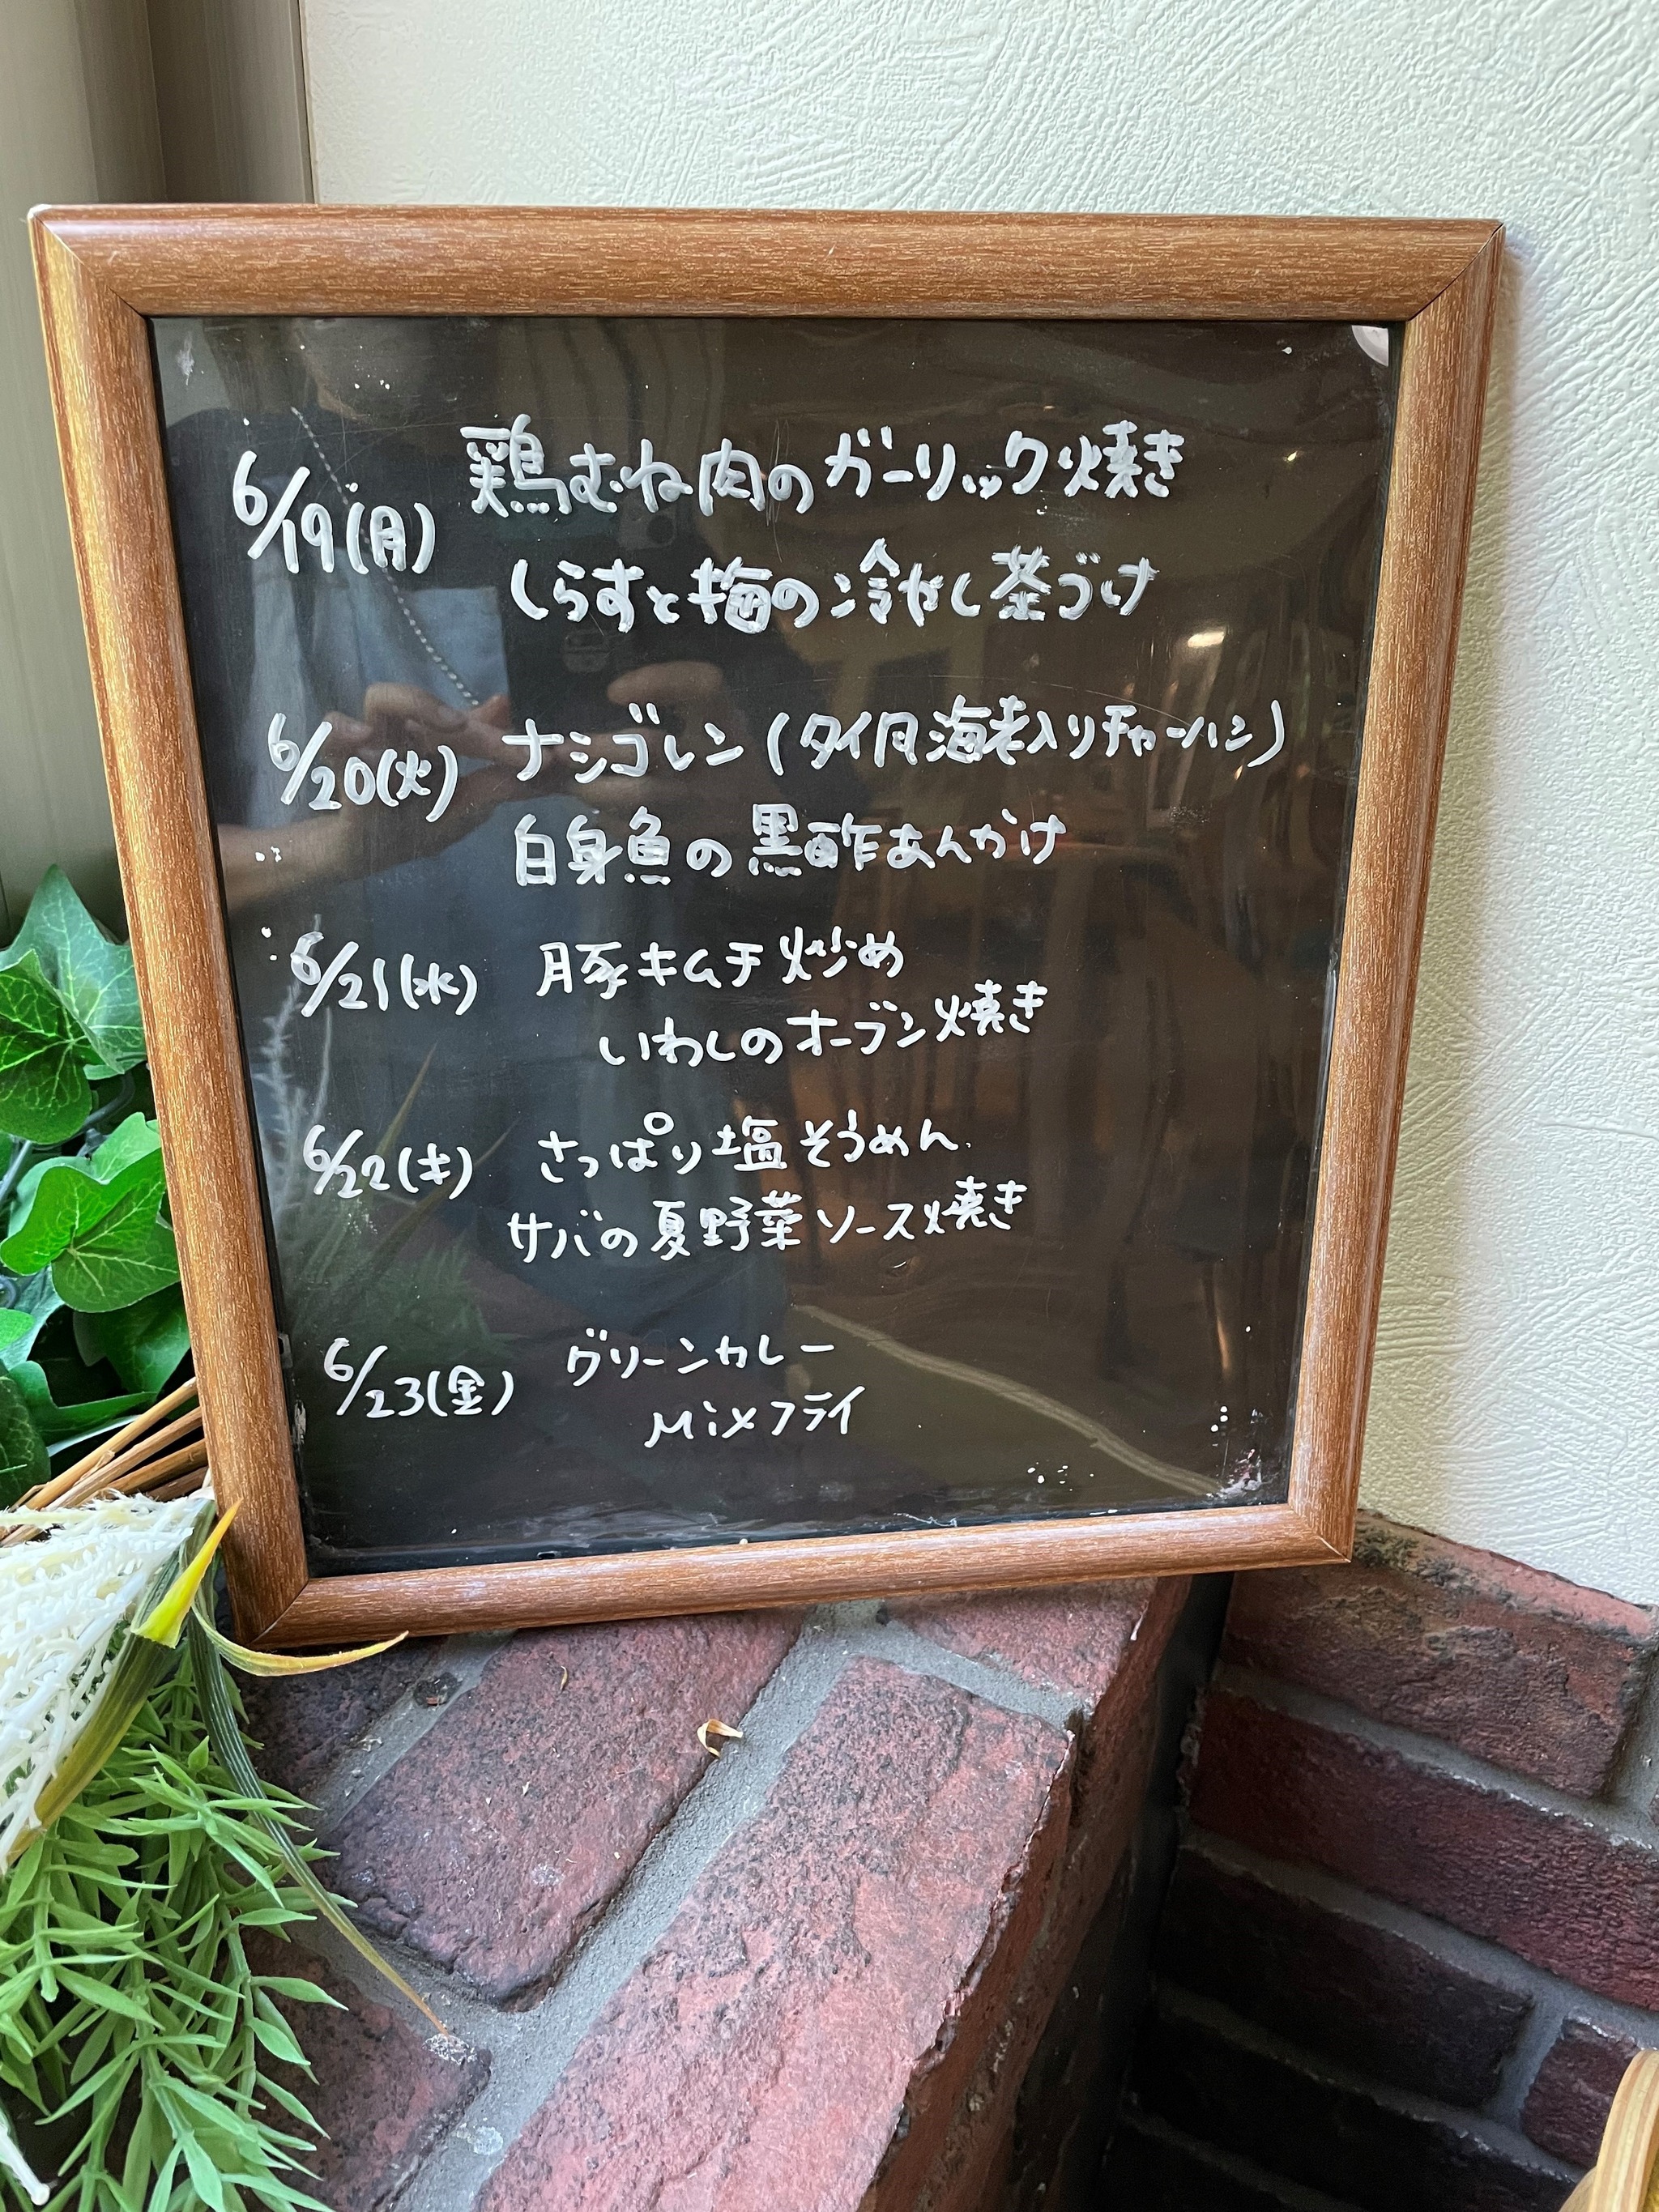 6/19(月) 鶏むね肉のガーリック焼き
しらすと梅の冷やし茶づけ
6/20(火) ナシゴレン(タイ風海老入りチャーハン)
白身魚の黒酢あんかけ
6/21(水) 豚キムチ炒め
いわしのオーブン焼き
6/22(木) さっぱり塩そうめん
サバの夏野菜ソース焼き
6/23(金) グリーンカレー
Mixフライ